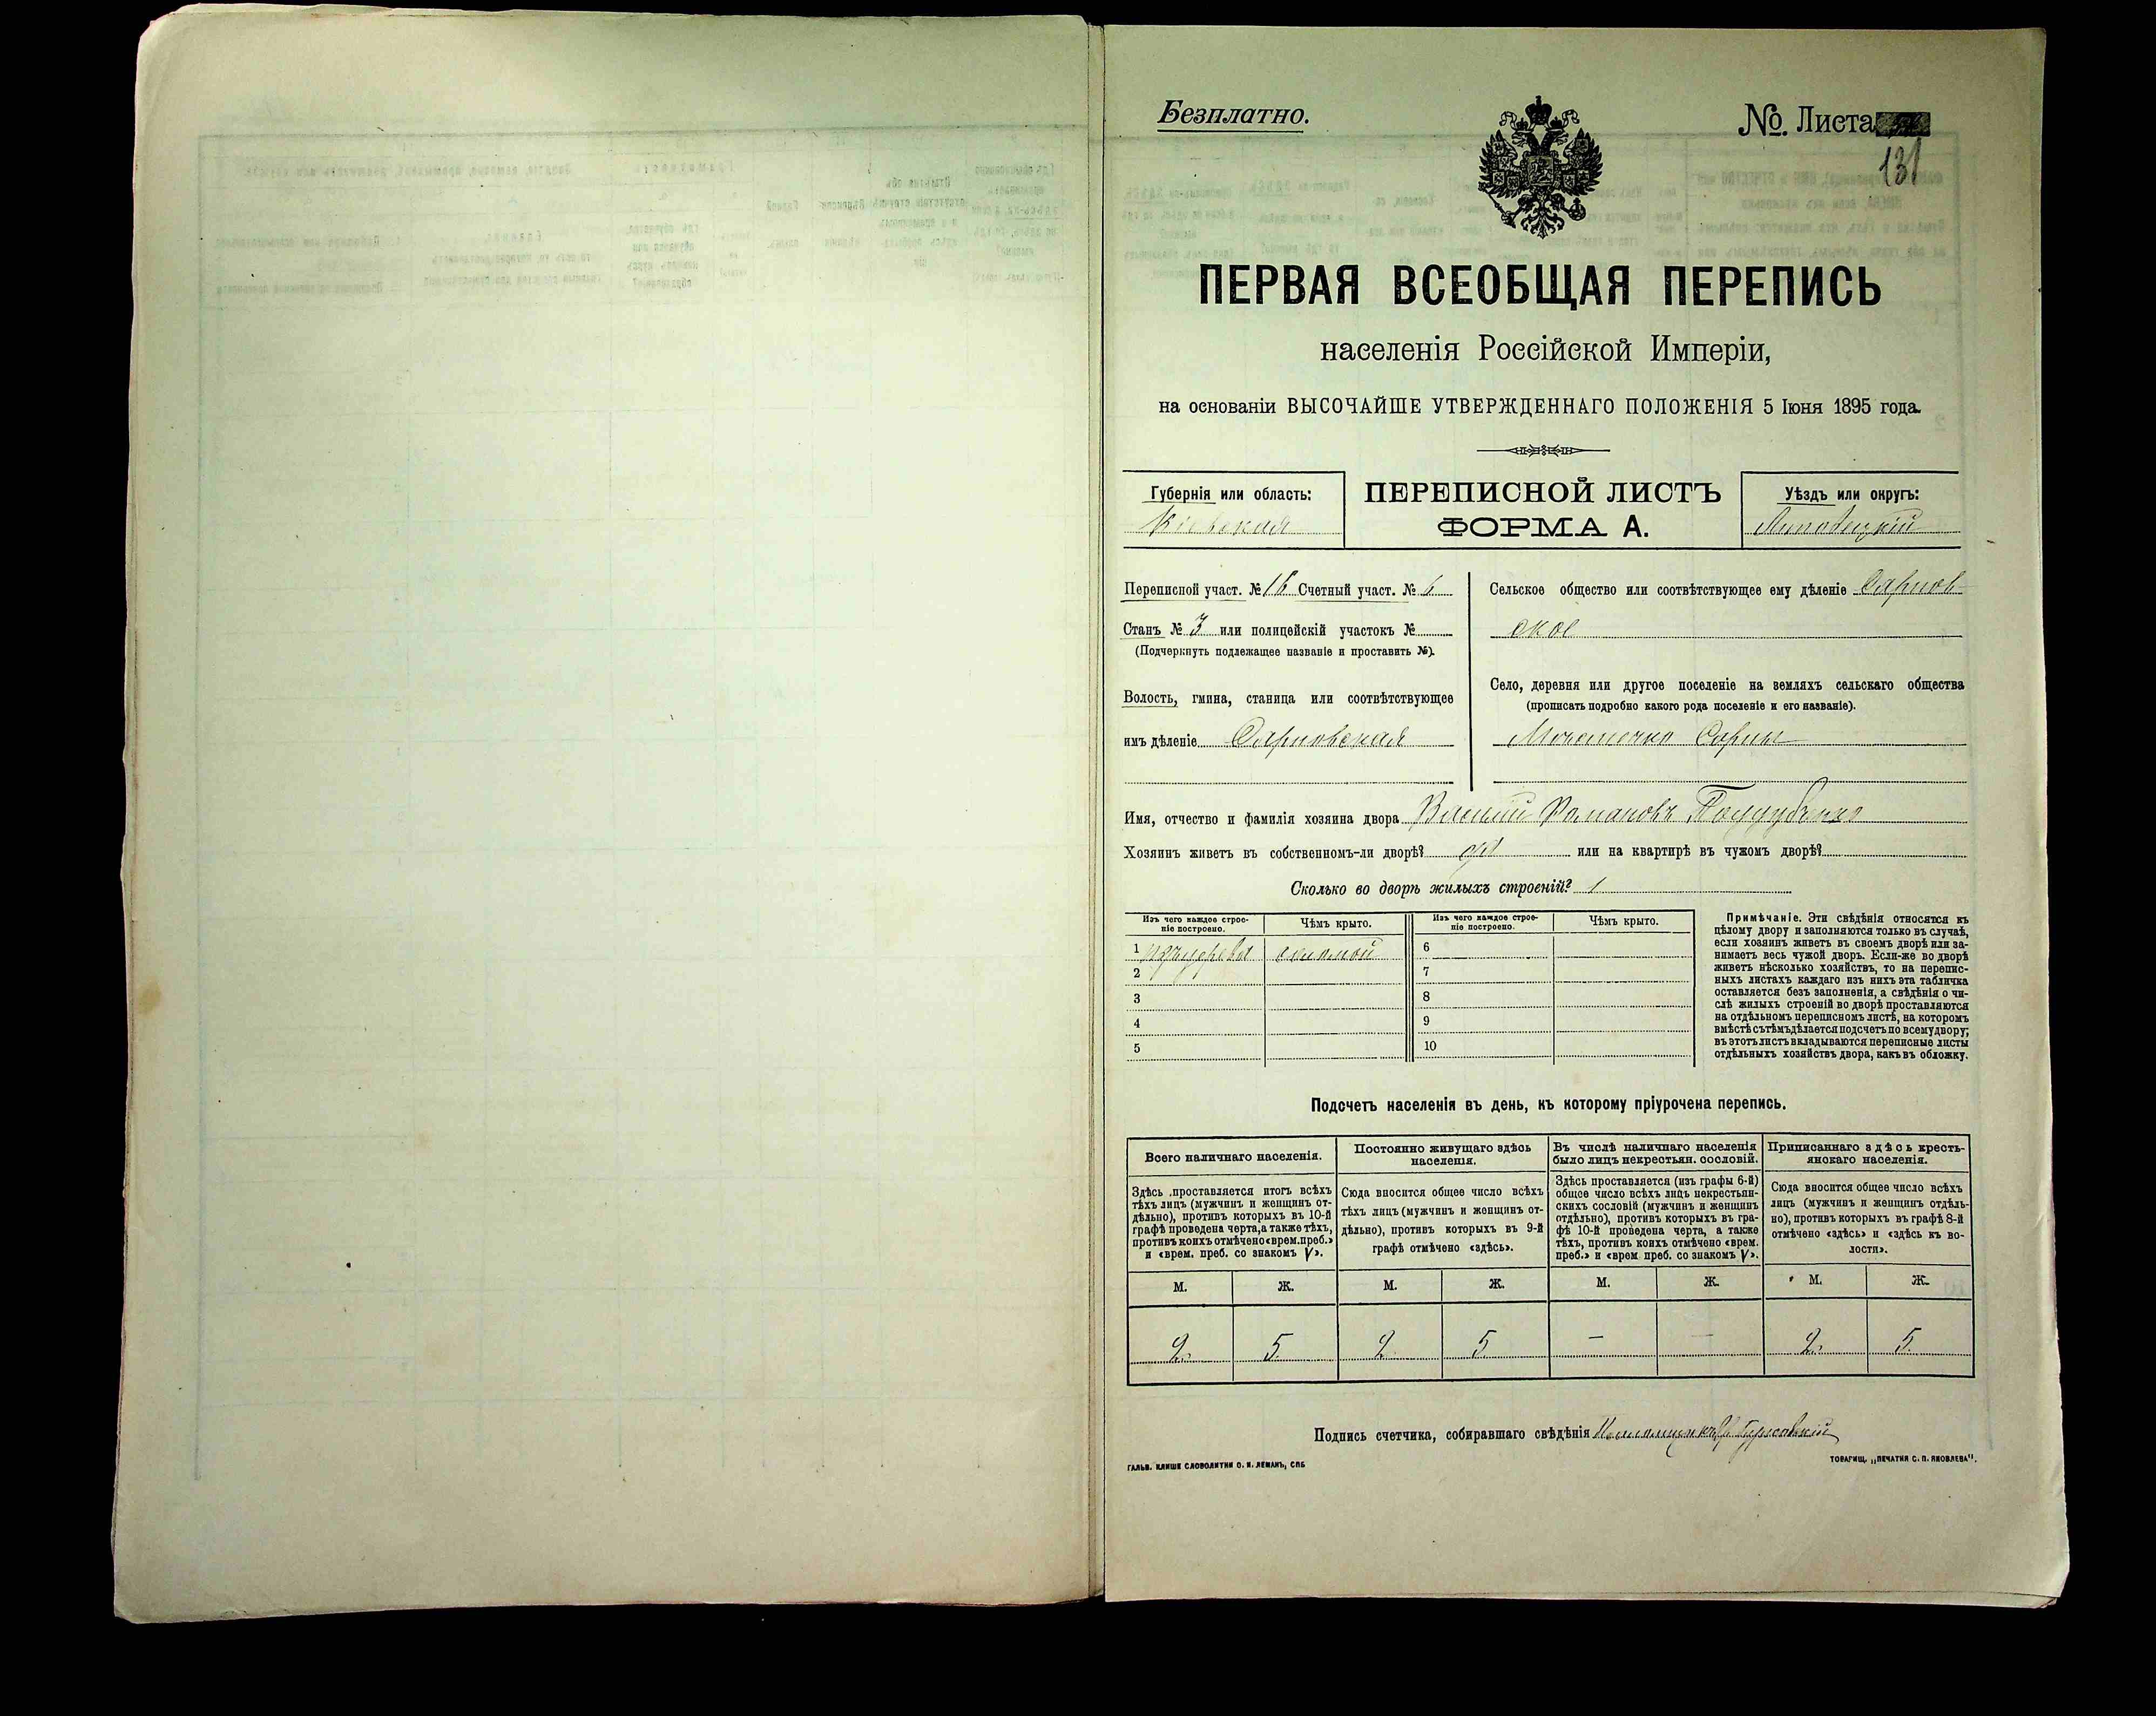 Безплатно.
№. Листа
131
ПЕРВАЯ ВСЕОБЩАЯ ПЕРЕПИСЬ
населенія Россійской Имперіи,
на основаніи ВЫСОЧАЙШЕ УТВЕРЖДЕННАГО ПОЛОЖЕНІЯ 5 Іюня 1895 года.
Губернія или область:
Кіевская
ПЕРЕПИСНОЙ ЛИСТЪ
ФОРМА А.
Уѣздъ или округъ:
Липовецкій
Переписной участ. № 16 Счетный участ. № 6
Станъ № 3 или полицейскій участокъ №
(Подчеркнуть подлежащее названіе и проставить №).
Волость, гмина, станица или соотвѣтствующее
имъ дѣленіе
Сельское общество или соотвѣтствующее ему дѣленіе
ское
Село, деревня или другое поселеніе на земляхъ сельскаго общества
(прописать подробно какого рода поселеніе и его названіе).
Имя, отчество и фамилія хозяина двора Василій Романовъ
Хозяинъ живетъ въ собственномъ-ли дворѣ? или на квартирѣ въ чужомъ дворѣ?
Сколько во дворѣ жилыхъ строеній? 1
Изъ чего каждое строе-
ніе построено.
Чѣмъ крыто.
Изъ чего каждое строе-
ніе построено.
Чѣмъ крыто.
1 изъ дерева соломой 6
2 7
3 8
4 9
5 10
Примѣчаніе. Эти свѣдѣнія относятся къ
цѣлому двору и заполняются только въ случаѣ,
если хозяинъ живетъ въ своемъ дворѣ или за-
нимаетъ весь чужой дворъ. Если-же во дворѣ
живетъ нѣсколько хозяйствъ, то на перепис-
ныхъ листахъ каждаго изъ нихъ эта табличка
оставляется безъ заполненія, а свѣдѣнія о чи-
слѣ жилыхъ строеній во дворѣ проставляются
на отдѣльномъ переписномъ листѣ, на которомъ
вмѣстѣ съ тѣмъ дѣлается подсчетъ по всему двору;
въ этотъ листъ вкладываются переписные листы
отдѣльныхъ хозяйствъ двора, какъ въ обложку.
Подсчетъ населенія въ день, къ которому пріурочена перепись.
Всего наличнаго населенія.
Здѣсь проставляется итогъ всѣхъ
тѣхъ лицъ (мужчинъ и женщинъ от-
дѣльно), противъ которыхъ въ 10-й
графѣ проведена черта, а также тѣхъ,
противъ коихъ отмѣчено «врем. преб.»
и «врем. преб. со знакомъ V».
Постоянно живущаго здѣсь
населенія.
Сюда вносится общее число всѣхъ
тѣхъ лицъ (мужчинъ и женщинъ от-
дѣльно), противъ которыхъ въ 9-й
графѣ отмѣчено «здѣсь».
Въ числѣ наличнаго населенія
было лицъ некрестьян. сословій.
Здѣсь проставляется (изъ графы 6-й)
общее число всѣхъ лицъ некрестьян-
скихъ сословій (мужчинъ и женщинъ
отдѣльно), противъ которыхъ въ гра-
фѣ 10-й проведена черта, а также
тѣхъ, противъ коихъ отмѣчено «врем.
преб.» и «врем преб. со знакомъ V».
Приписаннаго здѣсь кресть-
янскаго населенія.
Сюда вносится общее число всѣхъ
лицъ (мужчинъ и женщинъ отдѣль-
но), противъ которыхъ въ графѣ 8-й
отмѣчено «здѣсь» и «здѣсь къ во-
лости».
М. Ж. М. Ж. М. Ж. М. Ж.
2. 5. 2 5 — — 2. 5.
Подпись счетчика, собиравшаго свѣдѣнія
ГАЛЬВ. КЛИШЕ СЛОВОЛИТНИ О. И. ЛЕМАНЪ, СПБ
ТОВАРИЩ. „ПЕЧАТНЯ С. П. ЯКОВЛЕВА".